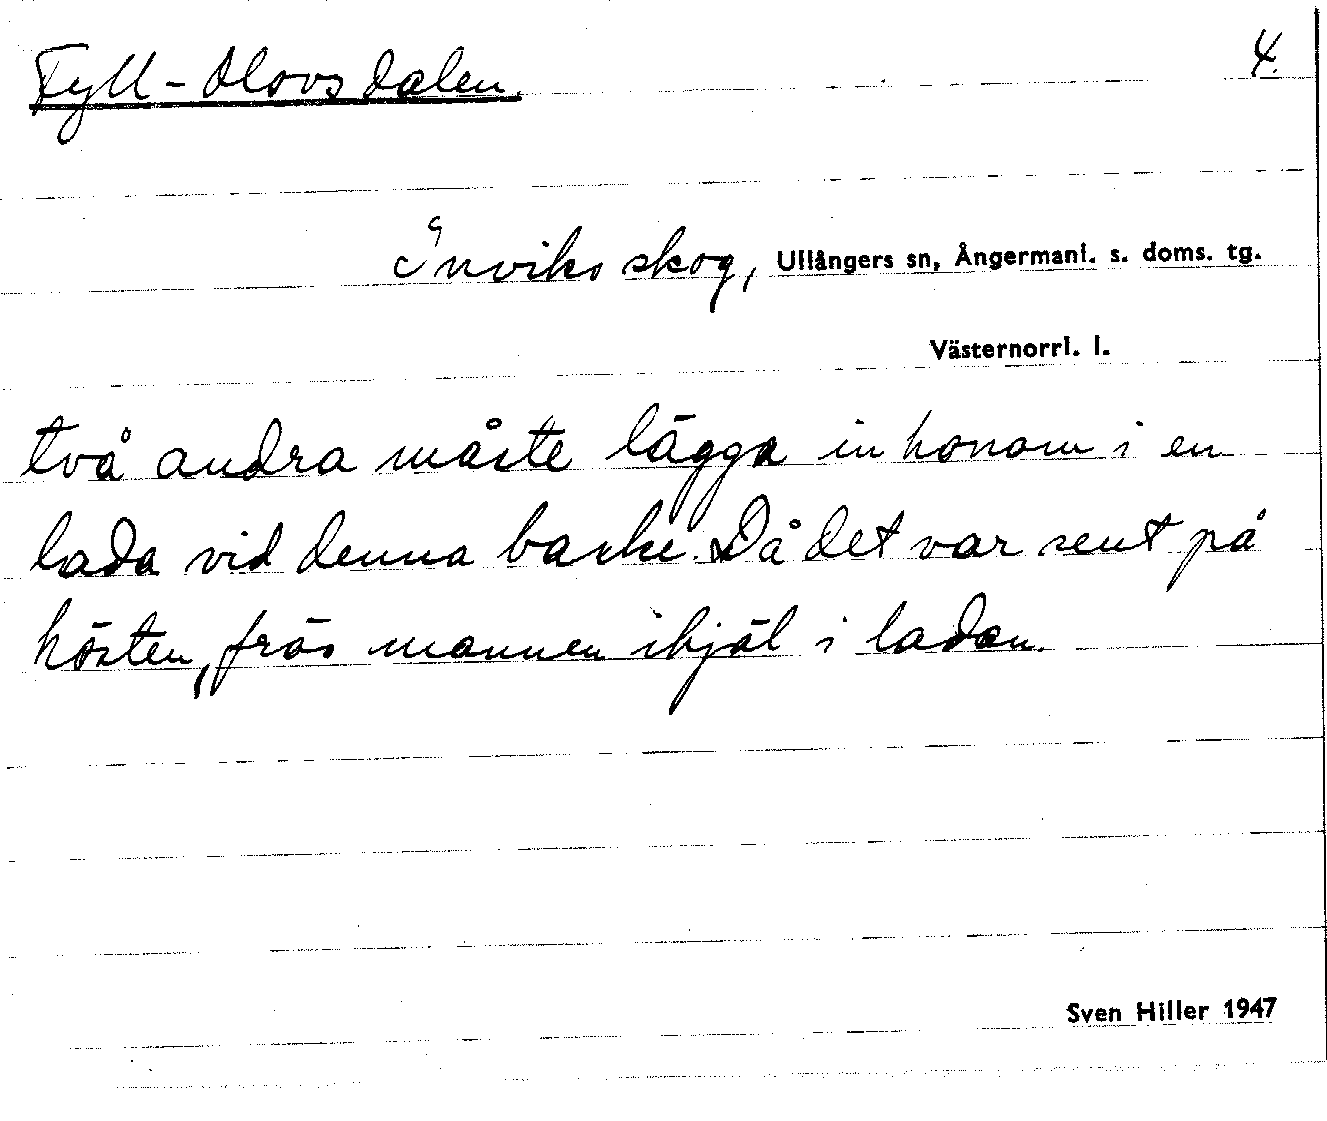 Fyll-Olovsdalen. 4.
Inviks skog, Ullångers sn, Ångermanl. s. doms. tg.
Västernorrl. l.
två andra måste lägga in honom i en
lada vid denna backe. Då det var sent på
hösten, frös mannen ihjäl i ladan.
Sven Hiller 1947